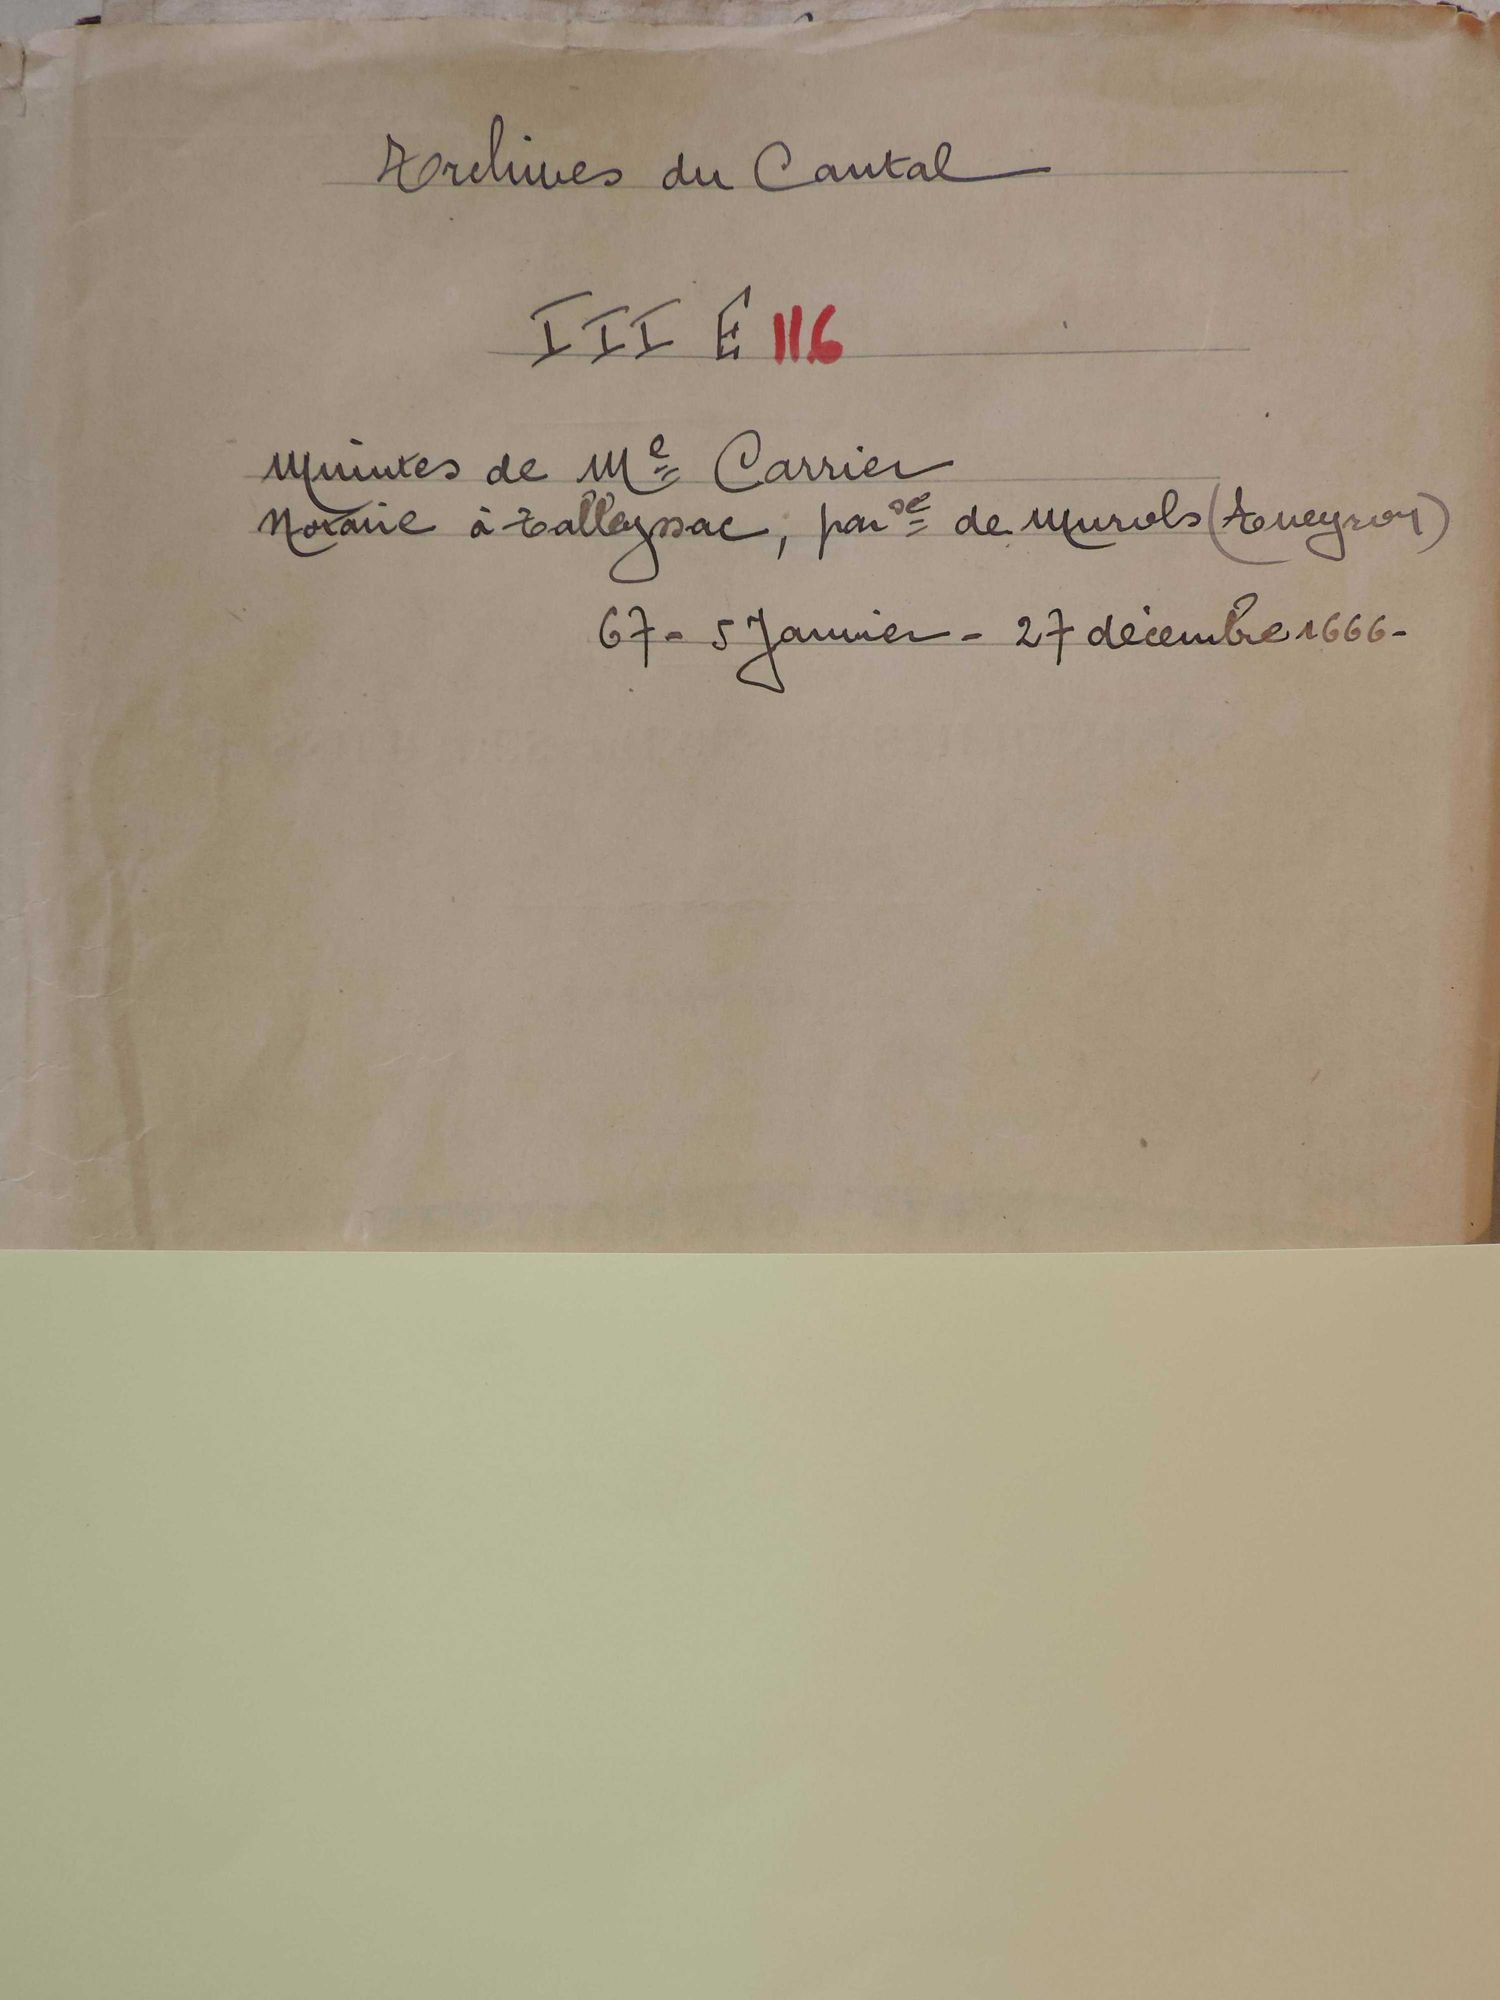 Archives du Cantal
III E 116
Minutes de Me Carrier
Notaire à Talleyssac, parse de Murols (Aveyron)
67 - 5 Janvier - 27 décembre 1666 -